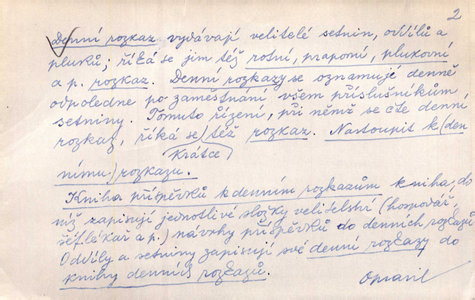 2
Denní rozkaz vydávají velitelé setnin, oddílů a
pluků; říká se jim též rotní, praporní, plukovní
a p. rozkaz. Denní rozkazy se oznamuje denně
odpoledne po zaměstnání všem příslušníkům
setniny. Tomuto řízení, při němž se čte denní
rozkaz, říká se též rozkaz. Nastoupit k (den
krátce
nímu) rozkazu.
Kniha příspěvků k denním rozkazům kniha, do
níž zapisují jednotlivé složky velitelství (hospodář,
šéflékař a p.) návrhy příspěvků do denních rozkazů
Oddíly a setniny zapisují své denní rozkazy do
knihy denních rozkazů.